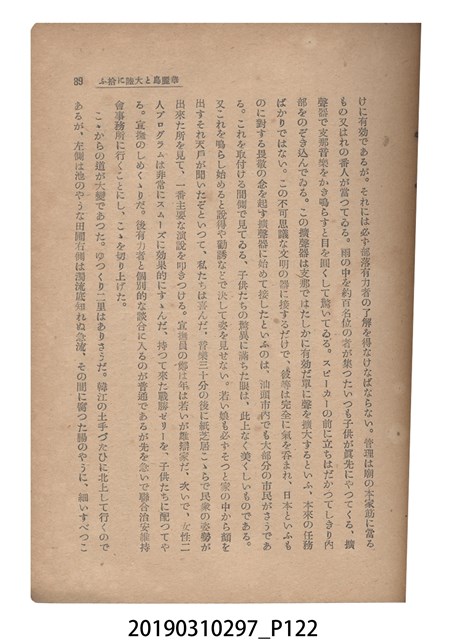 華麗島と大陸に拾ふ 89
けに有効であるが。それには必ず部落有力者の了解を得なけなばならない。管理は廟の本家筋に當る
もの又はれの番人が當つてゐる。雨の中を約百名位の者が集つたいつも子供が眞先にやつてくる、擴
聲器で支那音樂をかき鳴らすと目を圓くして驚いてゐる。スピーカーの前に立ちはだかつてしきり內
部をのぞき込んでゐる。この擴聲器は支那ではたしかに有効だ單に聲を擴大するといふ、本來の任務
ばかりではない。この不可思議な文明の器に接するだけで、彼等は完全に氣を呑まれ、日本といふも
のに對する畏敬の念を起す擴聲器に始めて接したといふのは、汕頭市內でも大部分の市民がさうであ
る。これを取付ける間側で見てゐる、子供たちの驚異に滿ちた眼は、此上なく美しいものである。
又これを鳴らし始めると說得や勸誘などで決して姿を見せない。若い娘も必ずそつと家の中から顏を
出すそれ天戶が開いたぞといつて、私たちは喜んだ、音樂三十分の後に紙芝居こゝらで民衆の姿勢が
出來た所を見て、一番主要な演說を叩きつける。宣撫員の鄭は年は若いが雄辯家だ、次いで、女性二
人プログラムは非常にスムーズに効果的にすゝんだ、持つて來た戰勝ゼリーを、子供たちに配つてや
る。宣撫のしめくゝりだ。後有力者と個別的な談合に入るのが普通であるが先を急いで聯合治安維持
會事務所に行くことにし、こゝを切り上げた。
こゝからの道が大變であつた。ゆつくり二里はありさうだ。韓江の土手づたひに北上して行くので
あるが、左側は池のやうな田圃右側は濁流底知れぬ急流、その間に奮つた腸のやうに、細いすべつこ
20190310297_P122